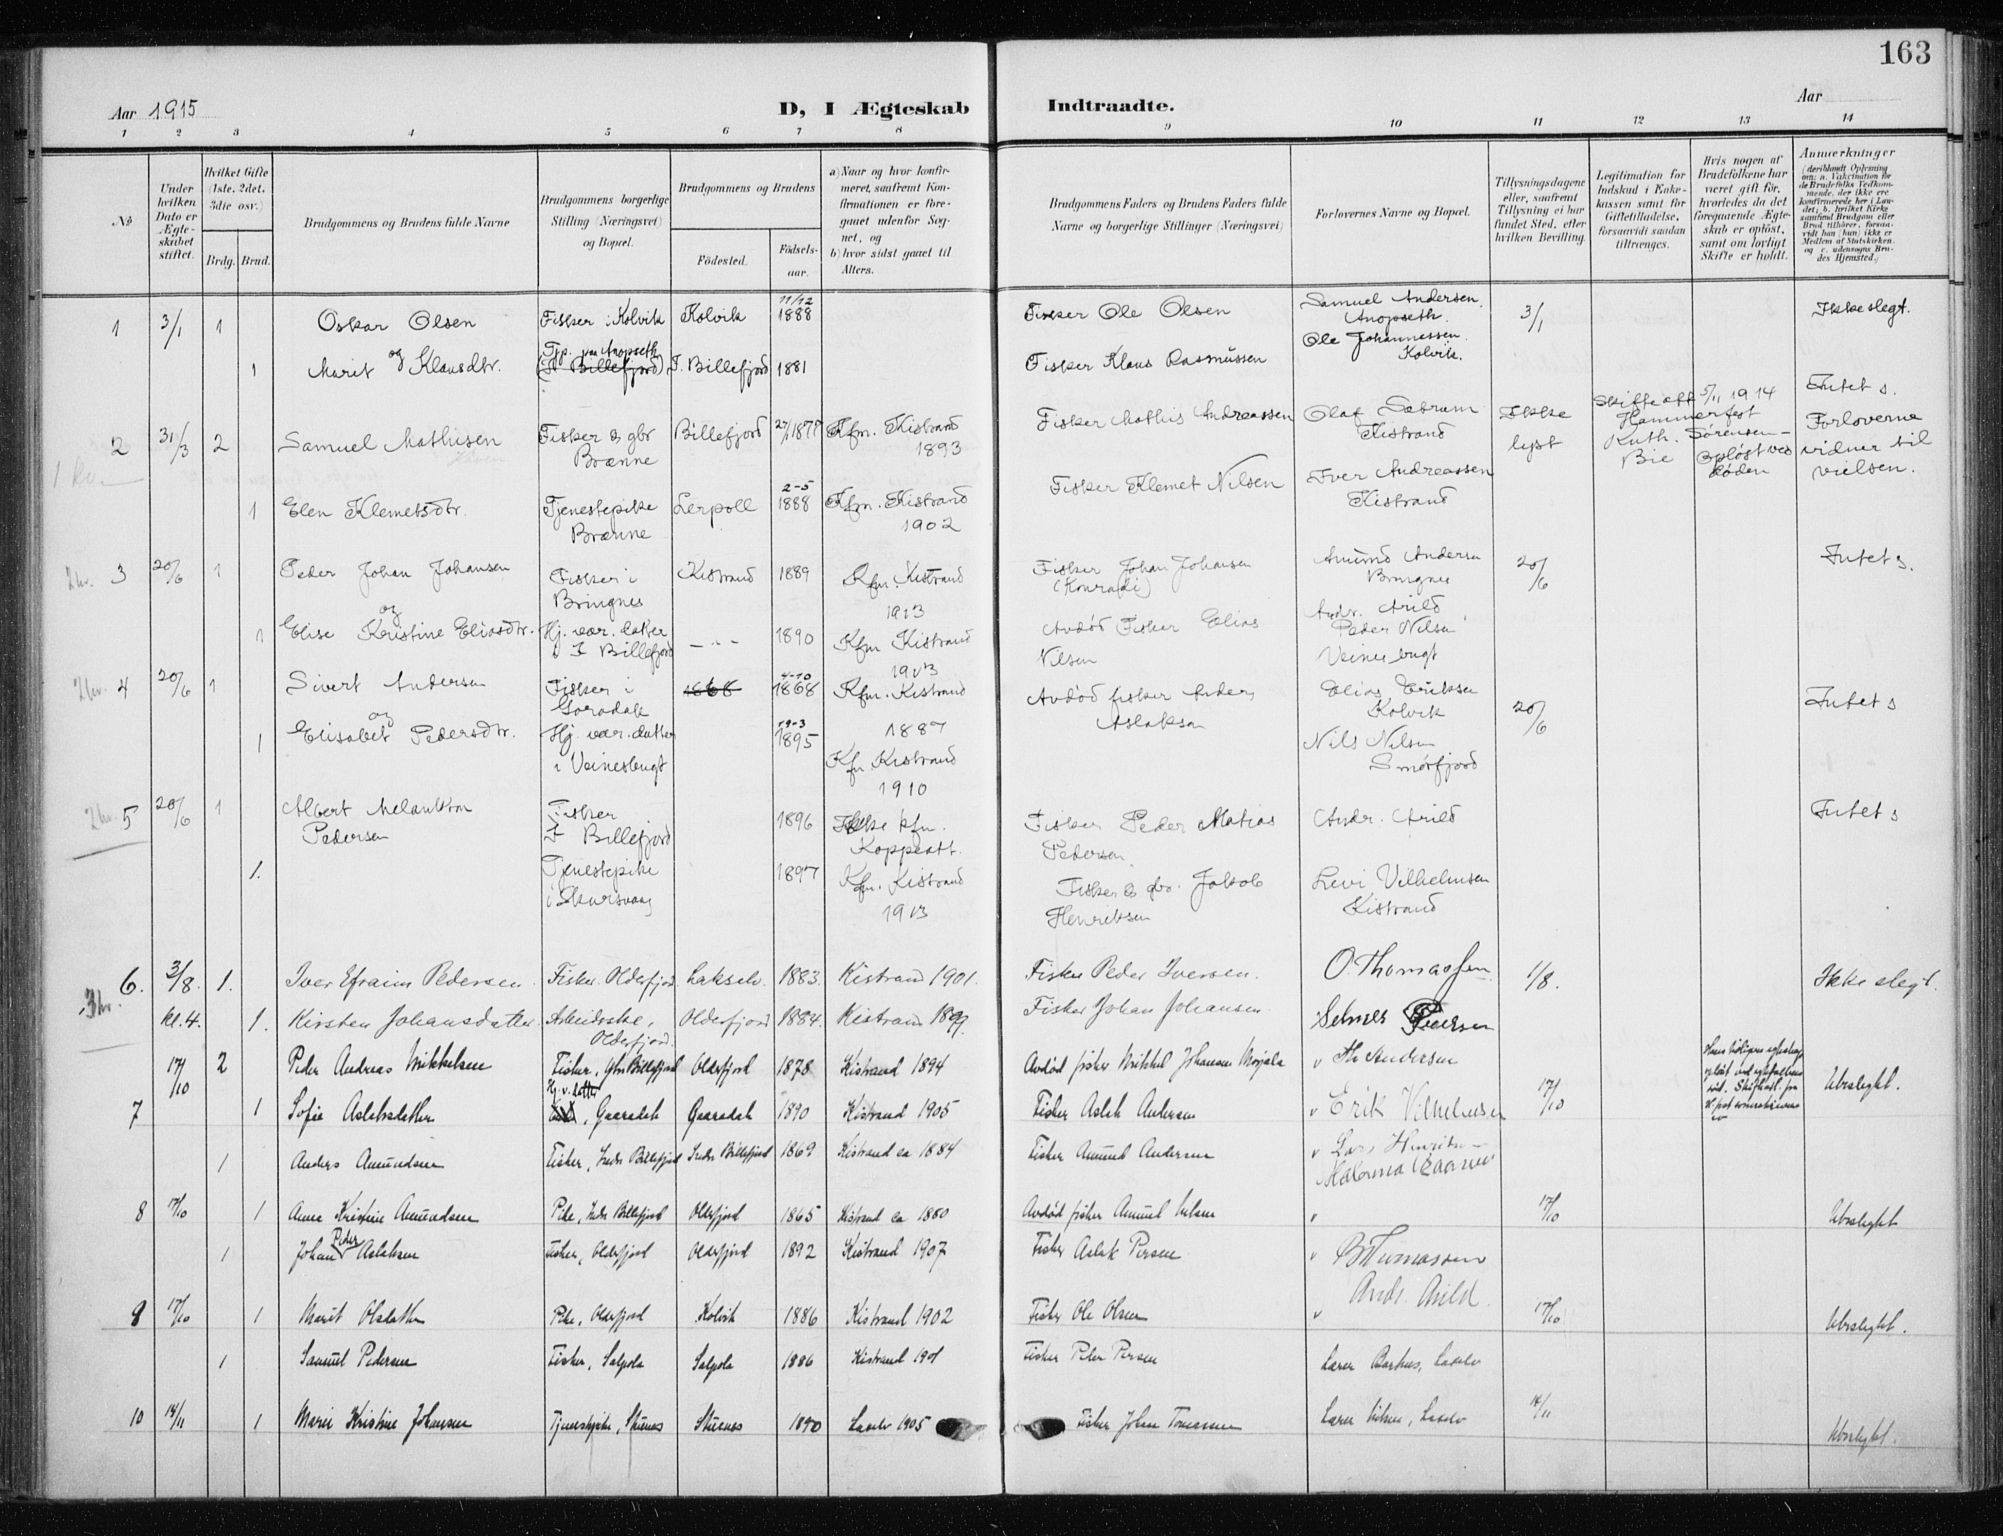 163
Aar 1915
D, I Ægteskab Indtraadte.
Aar
1 2 3 4 5 6 7 8 9 10 11 12 13 14
No
Under hvilken Dato er Ægteskabet stiftet.
Hvilket Gifte (1ste, 2det, 3die osv.)
Brdg. Brud.
Brudgommens og Brudens fulde Navne
Brudgommens borgerlige Stilling (Næringsvei) og Bopæl.
Brudgommens og Brudens
Födested.
Födsels-aar.
a) Naar og hvor konfirmeret, saafremt Konfirmationen er foregaaet udenfor Sognet, og
b) hvor sidst gaaet til Alters.
Brudgommens Faders og Brudens Faders fulde Navne og borgerlige Stillinger (Næringsvei)
Forlovernes Navne og Bopæl.
Tillysningsdagene eller, saafremt Tillysning ei har fundet Sted, efter hvilken Bevilling.
Legitimation for Indskud i Enkekassen samt for Giftetilladelse, forsaavidt saadan tiltrænges.
Hvis nogen af Brudefolkene har været gift för, hvorledes da det foregaaende Ægteskab er oplöst, samt om lovligt Skifte er holdt.
Anmærkninger
(deriblandt Oplysning om: a. Vakcination for de Brudefolks Vedkommende, der ikke ere konfirmerede her i Landet; b. hvilket Kirkesamfund Brudgom eller Brud tilhörer, forsaavidt han (hun) ikke er Medlem af Statskirken, og c. udensogns Brudes Hjemsted.)
1 3/1 1 Oskar Olsen Fisker i Kolvik Kolvik 11/12 1888 Fisker Ole Olsen Samuel Andersen Anopseth. 3/1 Ikke slegt.
og
Ole Johannessen Kolvik.
1 Marit Klausdtr. Anopseth (I. Billefjord) I. Billefjord 1881 Fisker Klaus Rasmussen
2 31/3 2 Samuel Mathisen Fisker & gbr Brænne Billefjord 1877 Kfm. Kistrand 1893 Fisker Mathis Andreassen Olaf Sæbrum Kistrand Ikke lyst Skifteatt 5/11 1914 Hammerfest Kuth. Sørensen Bie Opløst ved døden Intet s Forloverne vidner til vielsen.
1 Elen Klemetsdtr. Tjenestepike Brænne Lerpoll 2-5 1888 Kfm. Kistrand 1902 Fisker Klemet Nilsen Iver Andreassen Kistrand
2 kr. 3 20/6 1 Peder Johan Johansen Fisker i Bringnes Kistrand 1889 Kfm. Kistrand 1903 Fisker Johan Johansen (Konradi) Amund Andersen Bringnes 20/6 Intet s.
og
1 Elise Kristine Eliasdtr. Hj. vær. datter I Billefjord -"- 1890 Kfm Kistrand 1903 Avdød Fisker Elias Nilsen Andr. Arild Peder Nilsen Veinesbugt
2 kr. 4 20/6 1 Sivert Andersen Fisker i Goradak 1868 4-10 1868 Kfm. Kistrand 1887 Avdød fisker Anders Aslaksen Elias Eriksen Kolvik 20/6 Intet s
og
1 Elisabet Pedersdtr. Hj. vær. datter i Veinesbugt 19-3 1895 Kfm Kistrand 1910 Nils Nilsen Smørfjord
2 kr. 5 20/6 1 Albert Melankton Pedersen Fisker I Billefjord 1896 Ikke kfm. Koppeatt. Fisker Peder Matias Pedersen Andr. Arild Intet s
1. Tjenestepike i Skarsvaag 1897 Kfm. Kistrand 1913 Fisker & gbr. Jakob Henriksen Levi Vilhelmsen Kistrand
3 kr. 6. 3/8. 1. Iver Efraim Pedersen. Fisker. Olderfjord Lakselv. 1883. Kistrand 1901. Fisker Peder Iversen. O. Thomassen 1/8. Ikke slegt.
kl. 4. 1. Kirsten Johansdatter. Arbeiderske, Olderfjord. Olderfjord 1884. Kistrand 1899. Fisker Johan Johansen. Selmer Pedersen
7 17/10 2 Peder Andreas Mikkelsen Fisker, Ytre Billefjord Olderfjord 1878 Kistrand 1894 Avdød fisker Mikkel Johansen Andersen 17/10 Ubeslegtet.
1 Sofie Aslaksdatter Hj. v. datter, Gaaradak Gaaradak 1890 Kistrand 1905 Fisker Aslak Andersen Erik Vilhelmsen
8 17/10 1 Anders Amundsen Fisker, Indre Billefjord Indre Billefjord 1869 Kistrand ca 1884 Fisker Amund Andersen 17/10 Ubeslegtet
1 Anne Kristine Amundsen Pike, Indre Billefjord Olderfjord 1865 Kistrand ca 1880 Avdød fisker Amund Nilsen
9 17/10 1 Johan Peder Aslaksen Fisker, Olderfjord Olderfjord 1892 Kistrand 1907 Fisker Aslak Persen B Thomassen 17/10 Ubeslegtet.
1 Marit Olsdatter Pike, Olderfjord Kolvik 1886 Kistrand 1902 Fisker Ole Olsen Andr. Arild.
10 14/11 1 Samuel Pedersen Fisker, Salpola Salpola 1886 Kistrand 1901 Fisker Peder Persen Lærer Barhus, Lakselv 14/11 Ubeslegtet.
1 Marie Kristine Johansen Tjenestepike, Stuenes Stuenes 1890 Lakselv 1905 Fisker Johan Tomassen Lærer Nilsen, Lakselv